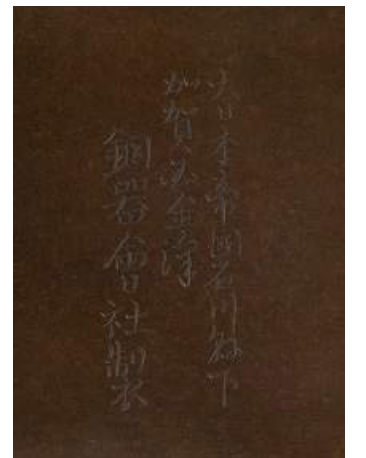 大日本帝國石川縣下
加賀國金澤
銅器會社製